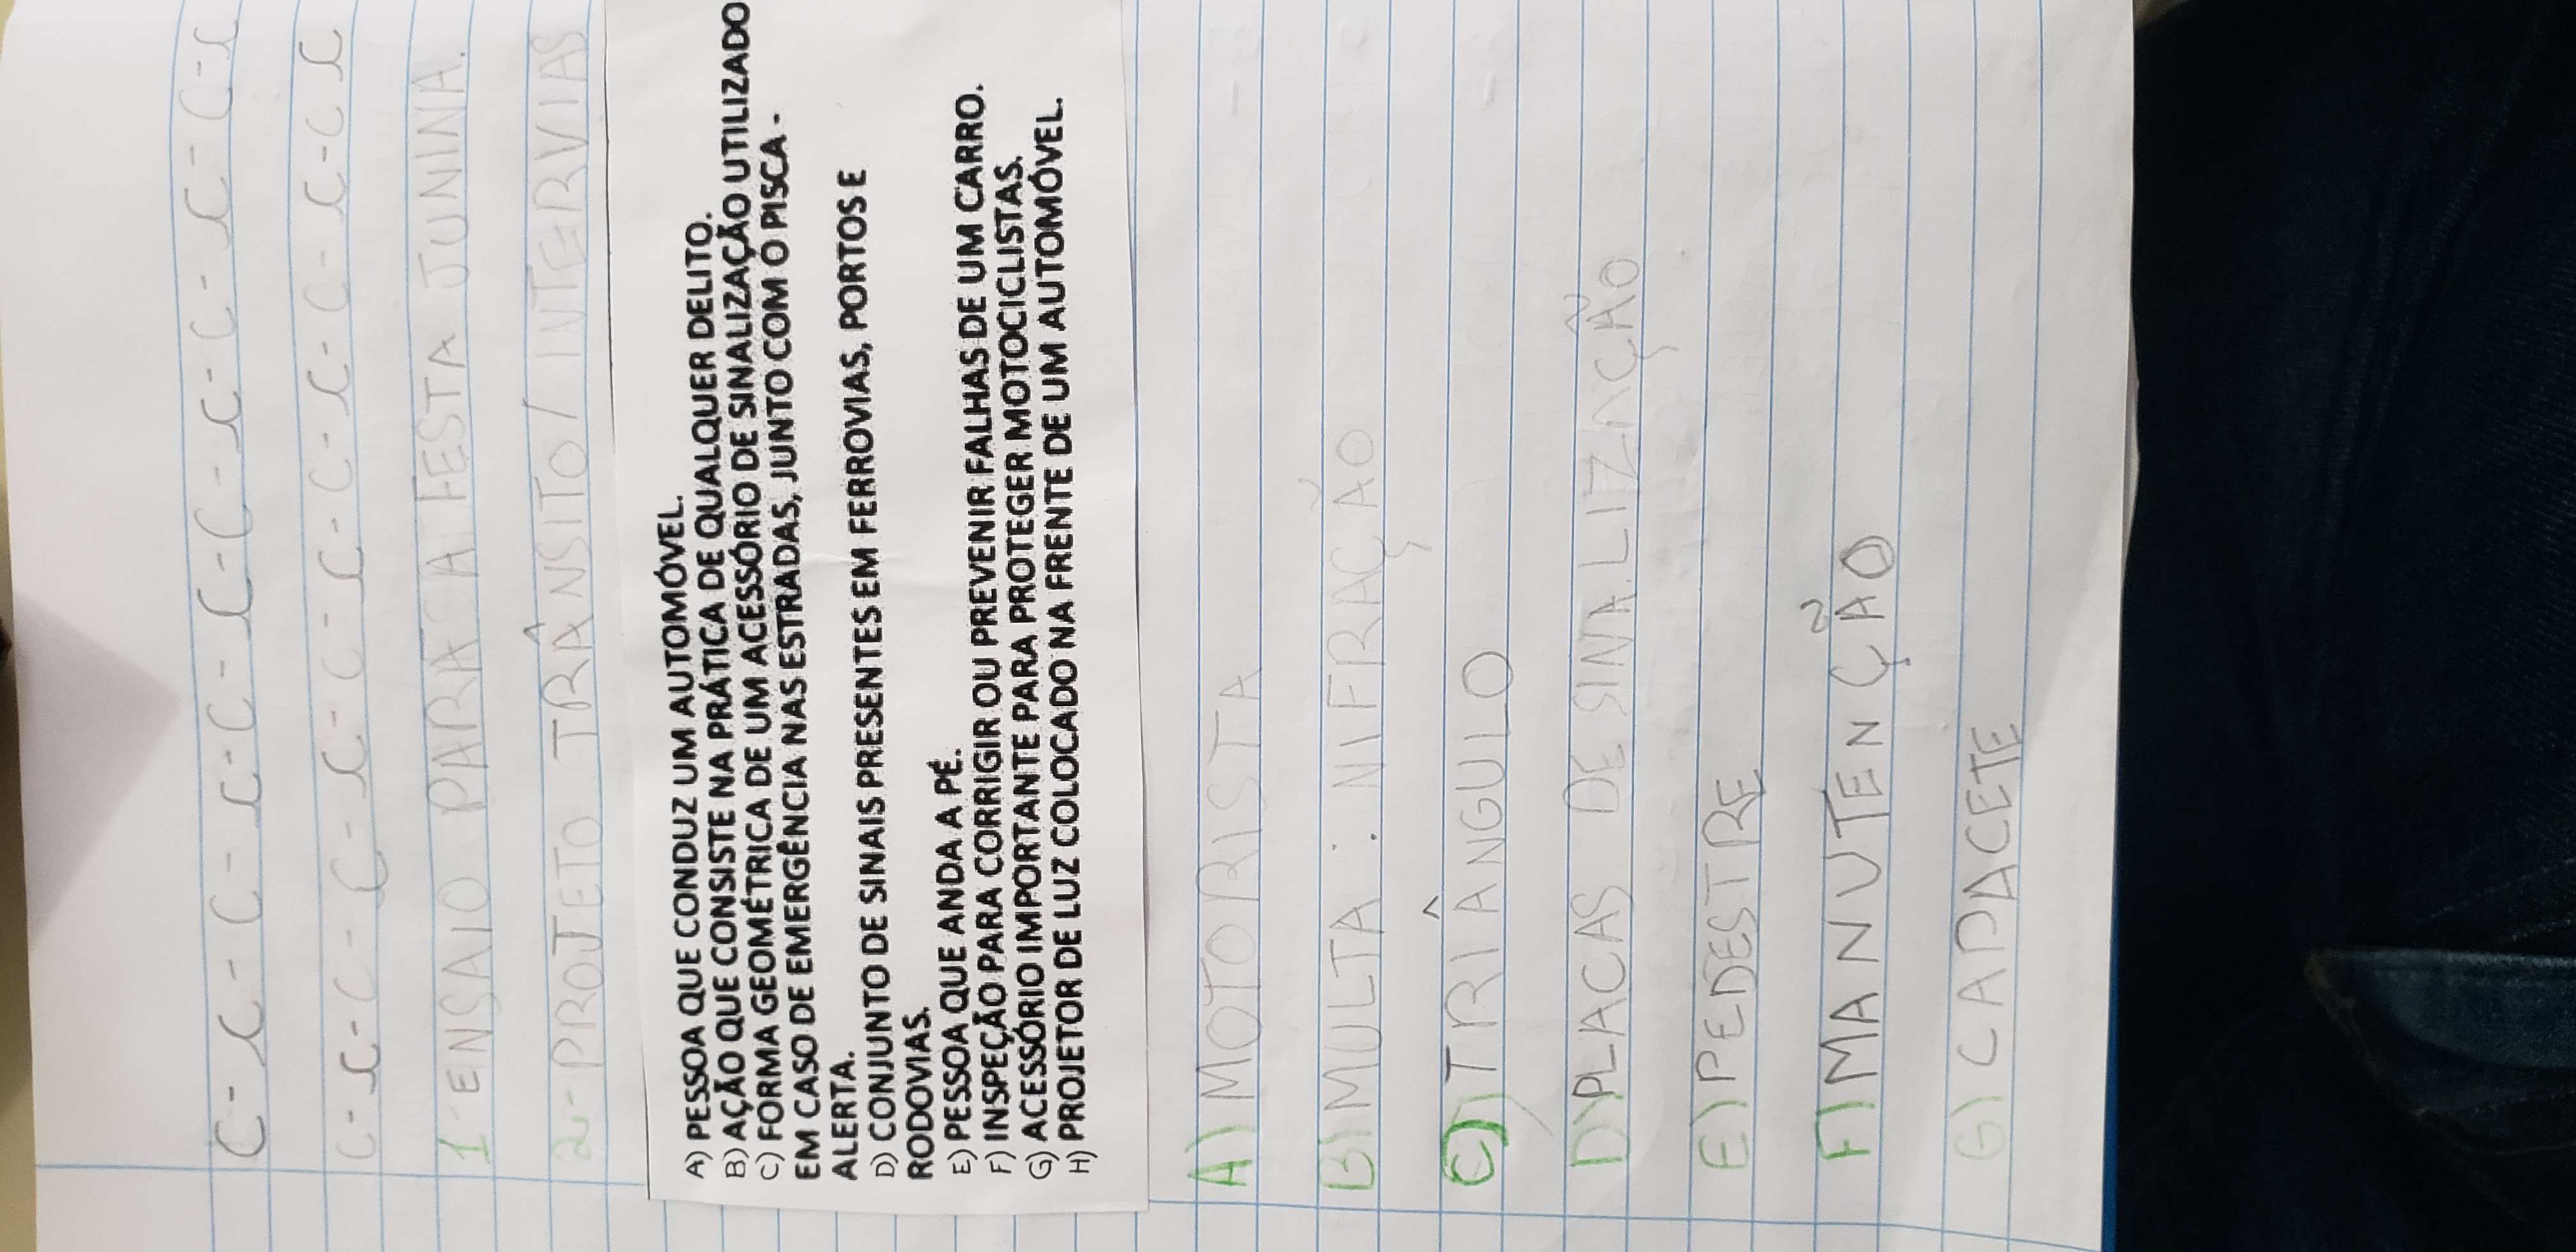 C - c - C - c - C - c - C - c - C - c - C - c
C - c - C - c - C - c - C - c - C - c - C c
1- ENSAIO PARA A FESTA JUNINA.
2- PROJETO TRÂNSITO / INTERVIAS
A) PESSOA QUE CONDUZ UM AUTOMÓVEL.
B) AÇÃO QUE CONSISTE NA PRÁTICA DE QUALQUER DELITO.
C) FORMA GEOMÉTRICA DE UM ACESSÓRIO DE SINALIZAÇÃO UTILIZADO
EM CASO DE EMERGÊNCIA NAS ESTRADAS, JUNTO COM O PISCA -
ALERTA.
D) CONJUNTO DE SINAIS PRESENTES EM FERROVIAS, PORTOS E
RODOVIAS.
E) PESSOA QUE ANDA A PÉ.
F) INSPEÇÃO PARA CORRIGIR OU PREVENIR FALHAS DE UM CARRO.
G) ACESSÓRIO IMPORTANTE PARA PROTEGER MOTOCICLISTAS.
H) PROJETOR DE LUZ COLOCADO NA FRENTE DE UM AUTOMÓVEL.
A) MOTORISTA
B) MULTA : NIFRAÇÃO
C) TRIÂNGULO
D) PLACAS DE SINALIZAÇÃO
E) PEDESTRE
F) MANUTENÇÃO
G) CAPACETE